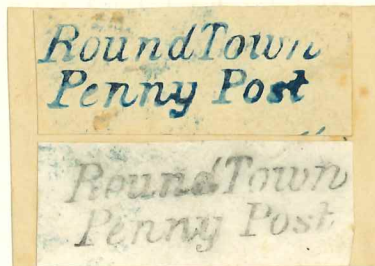 Round Town
Penny Post
Round Town
Penny Post